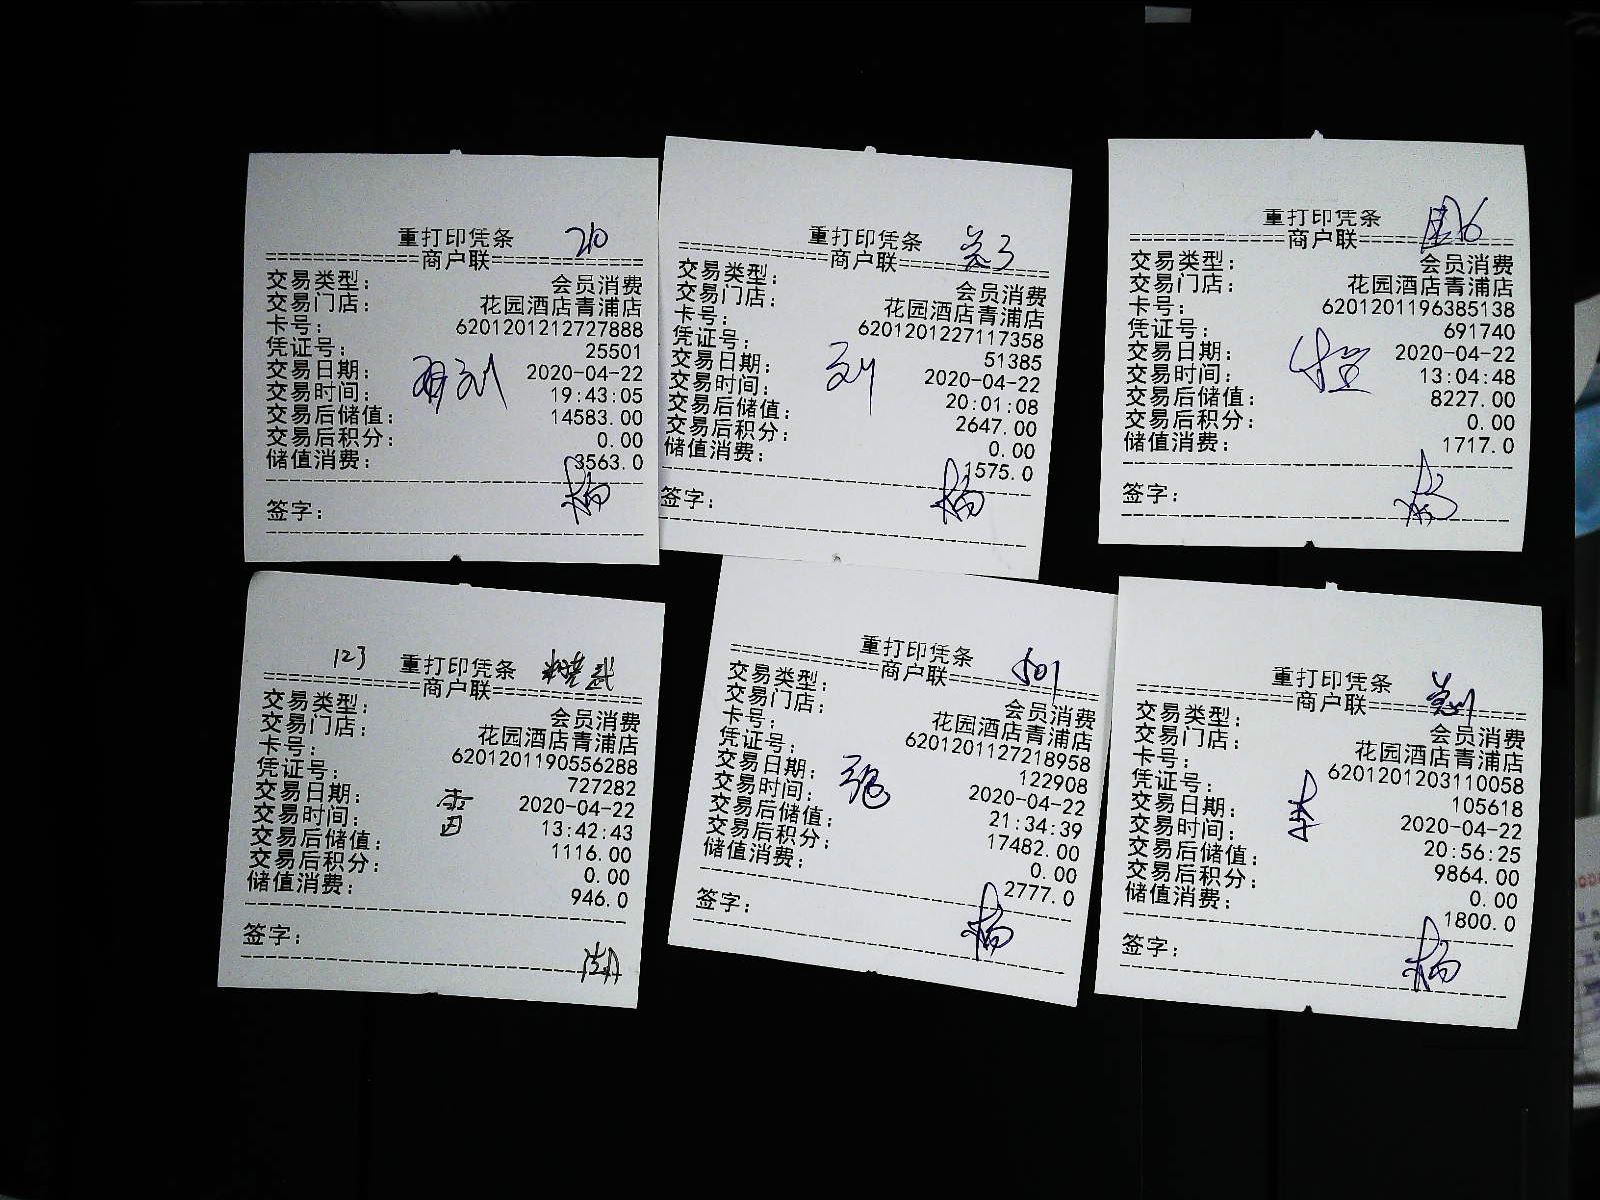 重打印凭条 210
====商户联====
交易类型： 会员消费
交易门店： 花园酒店青浦店
卡号： 6201201212727888
凭证号： 25501
交易日期： 2020-04-22
交易时间： 19:43:05
交易后储值： 14583.00
交易后积分： 0.00
储值消费： 3563.0
签字： 杨
重打印凭条
====商户联====
交易类型： 会员消费
交易门店： 花园酒店青浦店
卡号： 6201201227117358
凭证号： 51385
交易日期： 2020-04-22
交易时间： 20:01:08
刘
交易后储值： 2647.00
交易后积分： 0.00
储值消费： 1575.0
签字： 杨
重打印凭条
====商户联====
交易类型： 会员消费
交易门店： 花园酒店青浦店
卡号： 6201201196385138
凭证号： 691740
交易日期： 2020-04-22
交易时间： 13:04:48
交易后储值： 8227.00
交易后积分： 0.00
储值消费： 1717.0
签字：
123 重打印凭条
====商户联====
交易类型： 会员消费
交易门店： 花园酒店青浦店
卡号： 6201201190556288
凭证号： 727282
交易日期： 2020-04-22
雷
交易时间： 13:42:43
交易后储值： 1116.00
交易后积分： 0.00
储值消费： 946.0
签字：
重打印凭条 501
====商户联====
交易类型： 会员消费
交易门店： 花园酒店青浦店
卡号： 6201201127218958
凭证号： 122908
交易日期： 2020-04-22
张
交易时间： 21:34:39
交易后储值： 17482.00
交易后积分： 0.00
储值消费： 2777.0
签字： 杨
重打印凭条
====商户联====
交易类型： 会员消费
交易门店： 花园酒店青浦店
卡号： 6201201203110058
凭证号： 105618
交易日期： 2020-04-22
交易时间： 20:56:25
交易后储值： 9864.00
交易后积分： 0.00
储值消费： 1800.0
签字： 杨